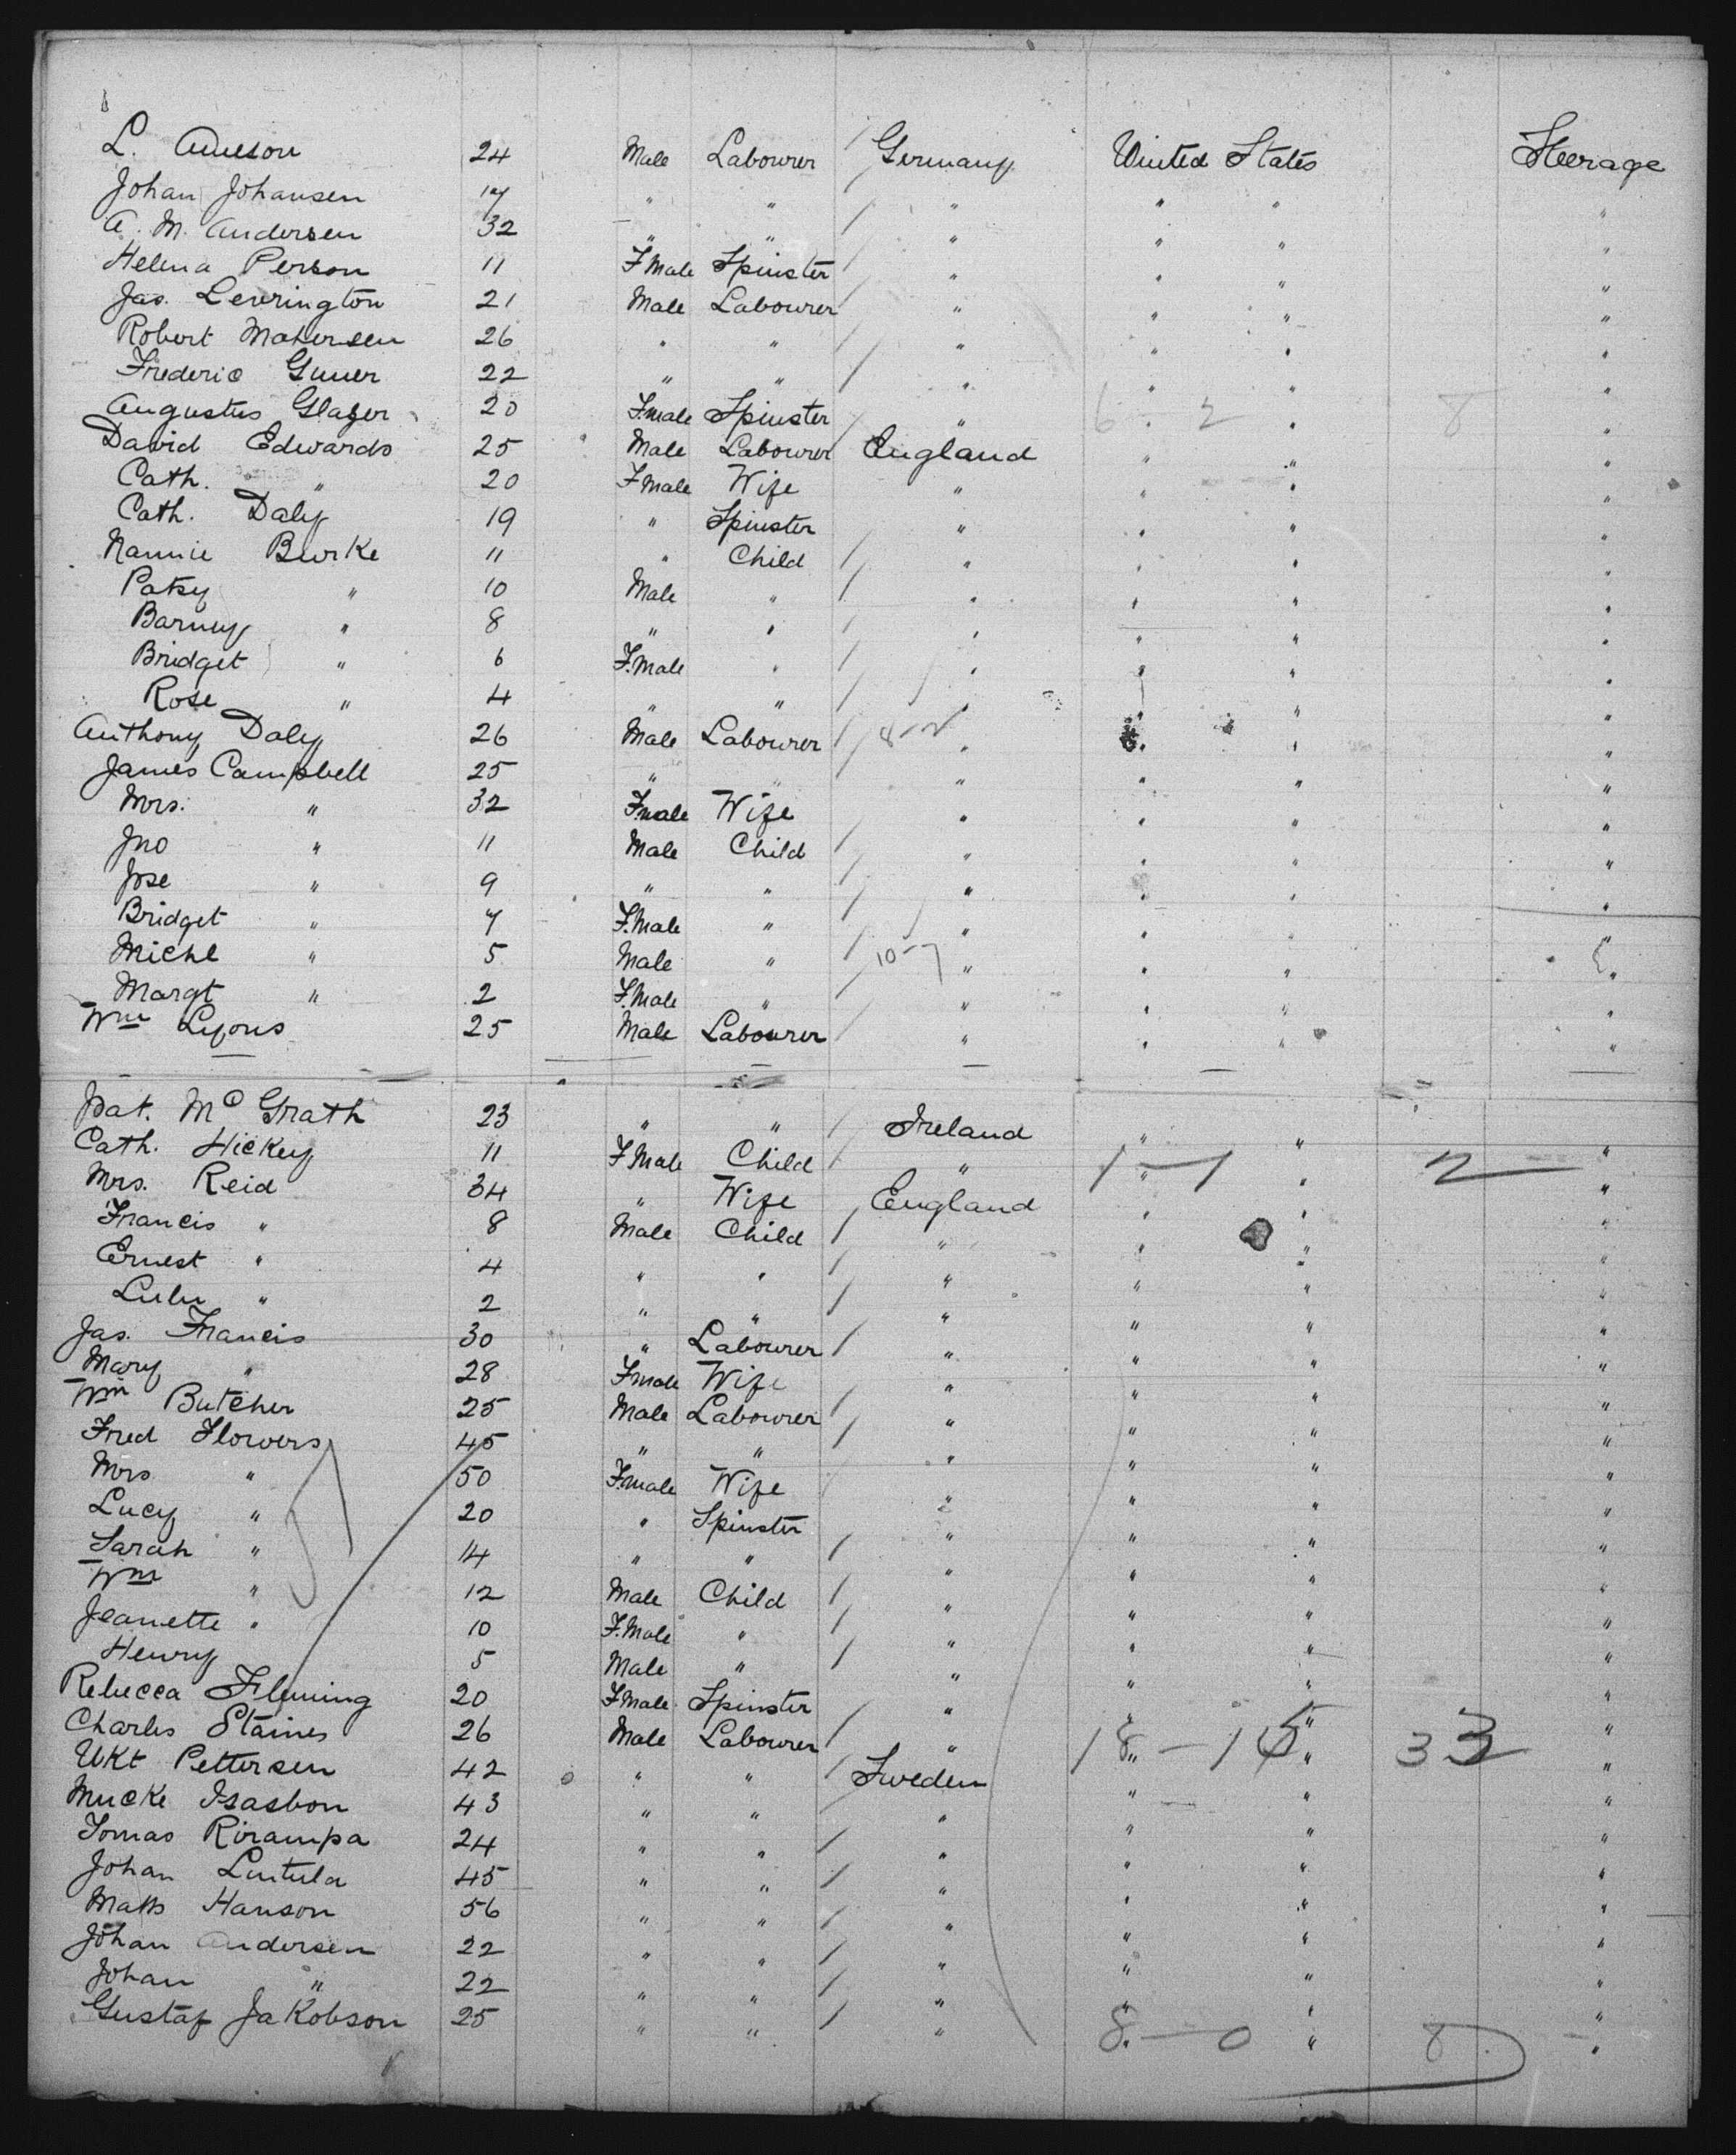 L. Aueson 24 Male Labourer / Germany United States Steerage
Johan Johansen 17 " " / " " " "
A. M. Andersen 32 " " / " " " "
Helena Person 11 F Male Spinster / " " " "
Jas. Leverington 21 Male Labourer / " " " "
Robert Matersen 26 " " / " " " "
Frederic Guuer 22 " " / " " " "
Augustus Glazer 20 F.male Spinster / " 6 - 2 " 8 "
David Edwards 25 Male Labourer England " " "
Cath. " 20 F male Wife " " " "
Cath. Daly 19 " Spinster " " " "
Nannie Burke 11 " Child / " " " "
Patsy " 10 Male " / " " " "
Barney " 8 " " / " " " "
Bridget " 6 F.male " / " " " "
Rose " 4 " " / " " " "
Anthony Daly 26 Male Labourer / 8-2 " " " "
James Campbell 25 " " / " " " "
Mrs. " 32 F.male Wife " " " "
Jno " 11 Male Child / " " " "
Jose " 9 " " / " " " "
Bridget " 7 F.Male " / " " " "
Michl " 5 Male " / 10-7 " " " "
Margt " 2 F.Male " / " " " "
Wm Lyons 25 Male Labourer / " " " "
Pat. McGrath 23 " " / Ireland " " "
Cath. Hickey 11 F Male Child / " 1 - 1 " " 2 "
Mrs. Reid 34 " Wife / England " " "
Francis " 8 Male Child / " " " "
Ernest " 4 " " / " " " "
Lulu " 2 " " / " " " "
Jas. Francis 30 " Labourer / " " " "
Mary " 28 F.male Wife " " " "
Wm Butcher 25 Male Labourer / " " " "
Fred Flowers 45 " " / " " " "
Mrs " 50 F.male Wife " " " "
Lucy " 20 " Spinster " " " "
Sarah " 14 " " / " " " "
Wm " 12 Male Child / " " " "
Jeanette " 10 F.Male " / " " " "
Henry 5 Male " / " " " "
Rebecca Fleming 20 F.Male Spinster / " " " "
Charles Staines 26 Male Labourer / " 18 - 15 " " 33 "
Ukt Pettersen 42 " " / Sweden " " "
Mucke Isasbon 43 " " / " " " "
Tomas Rirampa 24 " " / " " " "
Johan Lintula 45 " " / " " " "
Matts Hanson 56 " " / " " " "
Johan Andersen 22 " " / " " " "
Johan " 22 " " / " " " "
Gustaf Jakobson 25 " " / " 8 - 0 " " 8 "